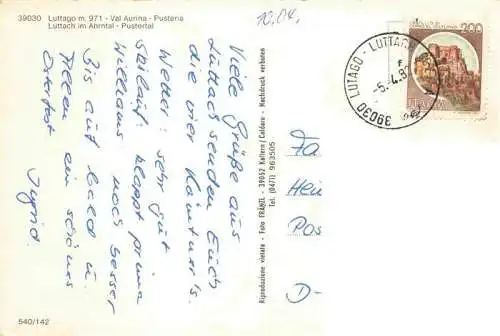 39030 Luttago m. 971 - Val Aurina - Pusteria
Luttach im Ahrntal - Pustertal
10.04.
Viele Grüße aus
Luttach senden Euch
die vier
Wetter: sehr gut
Skilauf: klappt prima
noch besser
Bis auf bald u.
Allen ein schönes
Osterfest
Ingrid.
540/142
Riproduzione vietata - Foto FRÄNZL - 39052 Kaltern/Caldaro - Nachdruck verboten
Tel. (0471) 963505
LUTAGO - LUTTACH
39030
-5.4.8
200
ITALIA
Fa
Hei
Pos
D-